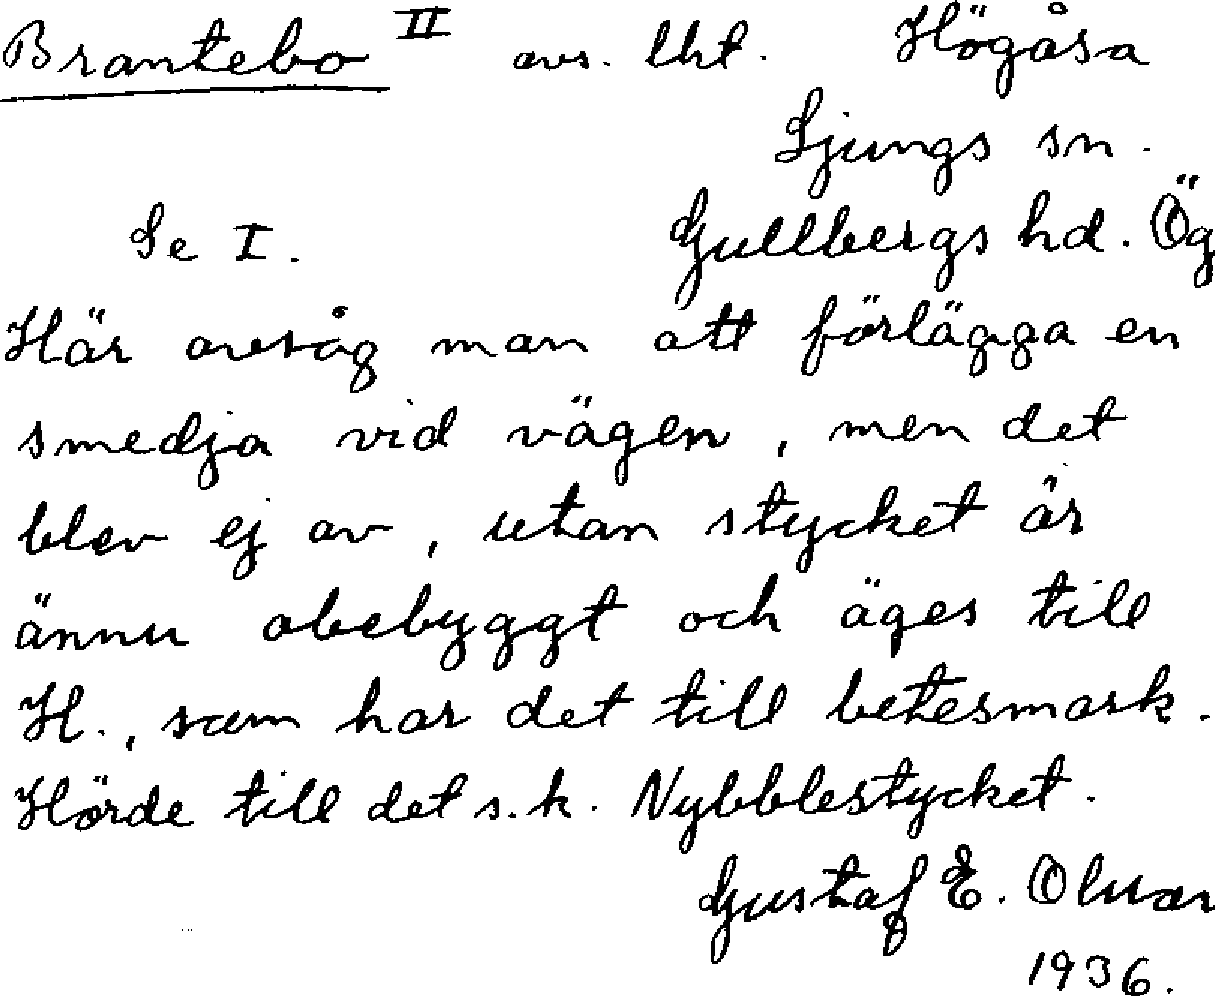 Brantebo II avs. lht. Högåsa
Ljungs sn.
Se I. Gullbergs hd. Ög
Här avsåg man att förlägga en
smedja vid vägen, men det
blev ej av, utan stycket är
ännu obebyggt och äges till
H., som har det till betesmark.
Hörde till det s.k. Nybblestycket.
Gustaf E.
1936.